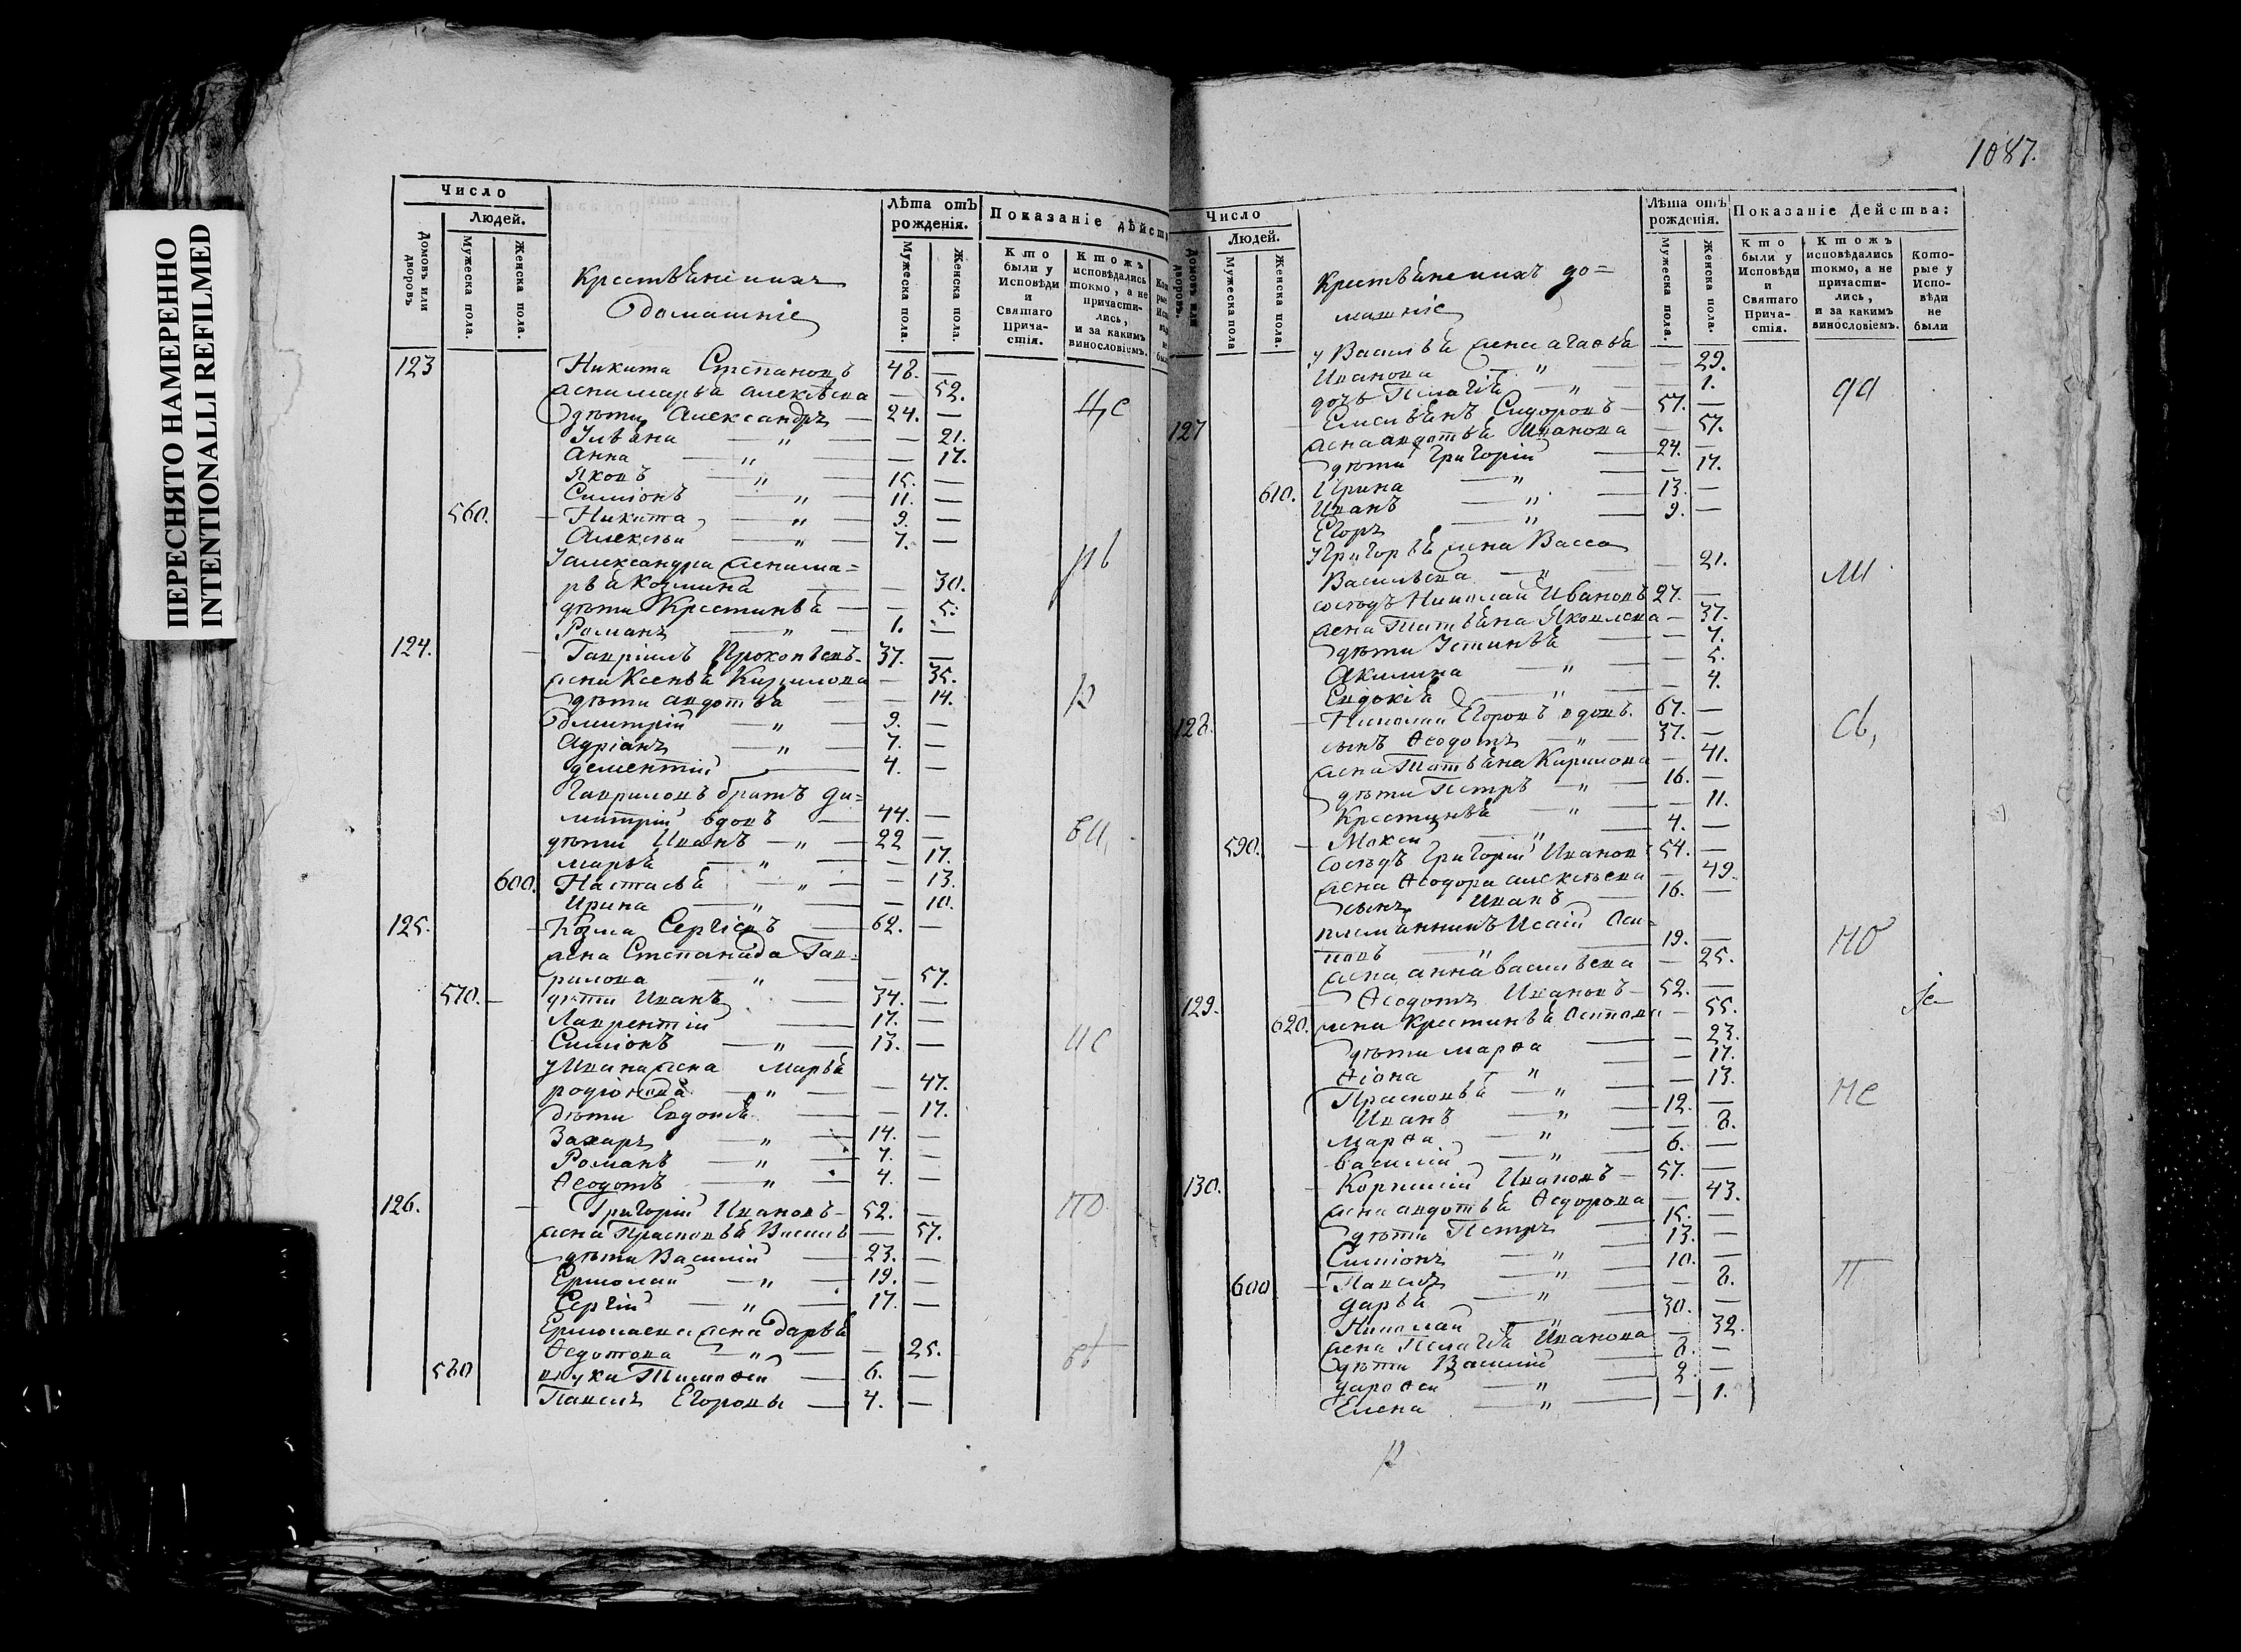 ПЕРЕСНЯТО НАМЕРЕННО
INTENTIONALLI REFILMED
Число
Людей.
Домовъ или дворовъ
Мужеска пола.
Женска пола.
Крестьяне ихъ
домашніе
Лѣта отъ рожденія.
Мужеска пола.
Женска пола.
Показаніе дѣйст
Кто были у Исповѣди и Святаго Прича- стія.
Ктожъ исповѣдались токмо, а не причасти- лись, и за какимъ винословіемъ.
123 Никита Степановъ 48. —
жена марья алексѣева — 52.
дѣти Александръ — 24. —
Ульяна — " — — 21.
Анна — " — — 17.
Яковъ — " — 15. —
Симіонъ — " — 11. —
560. Никита — " — 9. —
Алексѣй — " — 7. —
Уалександра жена ма=
рья козмина — 30.
дѣти Крестинья — — 5.
Романъ — " — 1. —
124. Гавріилъ Прокопьевъ 37. —
жена Ксенья Кирилова — 35.
дѣти авдотья — — 14.
дмитрій — " — 9. —
Адріанъ — " — 7. —
дементій — 4. —
Гавриловъ братъ ди=
митрій вдовъ — 44. —
дѣти Иванъ — " — 22 —
марья — " — — 17.
600. Настасья — " — — 13.
Ирина — " — — 10.
125. Козма Сергіевъ — 62. —
жена Степанида Гав=
рилова — " — — 57.
570. дѣти Иванъ — 34. —
Лаврентій — 17. —
Симіонъ — " — 13. —
уИвана жена Марья
родіонова — " — — 47.
дѣти Евдотья — — 17.
Захаръ — " — 14. —
Романъ — " — 7. —
Ѳеодотъ — " — 4. —
126. Григорій Ивановъ — 52. —
жена Прасковья Василь — 57.
дѣти Василій — 23. —
Ермолай — " — 19. —
Сергій — " — 17. —
Ермолаева жена дарья
Ѳедотова — " — — 25.
580 внуки Тимоѳей — 6. —
Павелъ Егоровы — 4. —
1087.
Число
Людей.
Домовъ или дворовъ.
Мужеска пола
Женска пола.
Крестьяне ихъ до=
машніе
Лѣта отъ рожденія.
Мужеска пола.
Женска пола.
Показаніе Действа:
Кто были у Исповѣди и Святаго Прича- стія.
Ктожъ исповѣдались токмо, а не причасти- лись, и за какимъ винословіемъ.
Кото- рые у Испо- вѣди не были
у Василья жена агаѳья
Иванова — " — — 29.
дочь Пелагія — " — — 1.
127 Емельянъ Сидоровъ — 57. —
жена авдотья Иванова — 57.
дѣти Григорій — 24. —
610. Ирина — " — — 17.
Иванъ — " — 13. —
Егоръ — " — 9. —
УГригорья жена Васса
Васильева — " — — 21.
сосѣдъ Николай Ивановъ 27. —
жена Татьяна Яковлева — 37.
дѣти Устинья — — 7.
Акилина — " — — 5.
Евдокія — " — — 4.
128. Николай Егоровъ вдовъ. 67. —
сынъ Ѳеодотъ — " — 37. —
жена Татьяна Кирилова — 41.
дѣти Петръ — " — 16. —
Крестинья — " — — 11.
590. Мокей — " — 4. —
Сосѣдъ Григорій Ивановъ 54. —
жена Ѳеодора алексѣева — 49.
сынъ Иванъ — 16. —
племянникъ Исаій Оси=
повъ — " — 19. —
жена анна васильева — 25.
129. Ѳеодотъ Ивановъ — 52. —
620. жена Крестинья Осипова — 55.
дѣти марѳа — — 23.
Ѳіона — " — — 17.
Прасковья — " — — 13.
Иванъ — " — 12. —
Марѳа — " — — 8.
василій — " — 6. —
130. Корнилій Ивановъ — 57. —
жена авдотья Ѳедорова — 43.
дѣти Петръ — 15. —
Симіонъ — " — 13. —
600 Павелъ — " — 10. —
дарья — " — — 8.
Николай — " — 30. —
жена Пелагія Иванова — 32.
дѣти Василій — 8. —
дароѳей — " — 2. —
Елена — " — — 1.